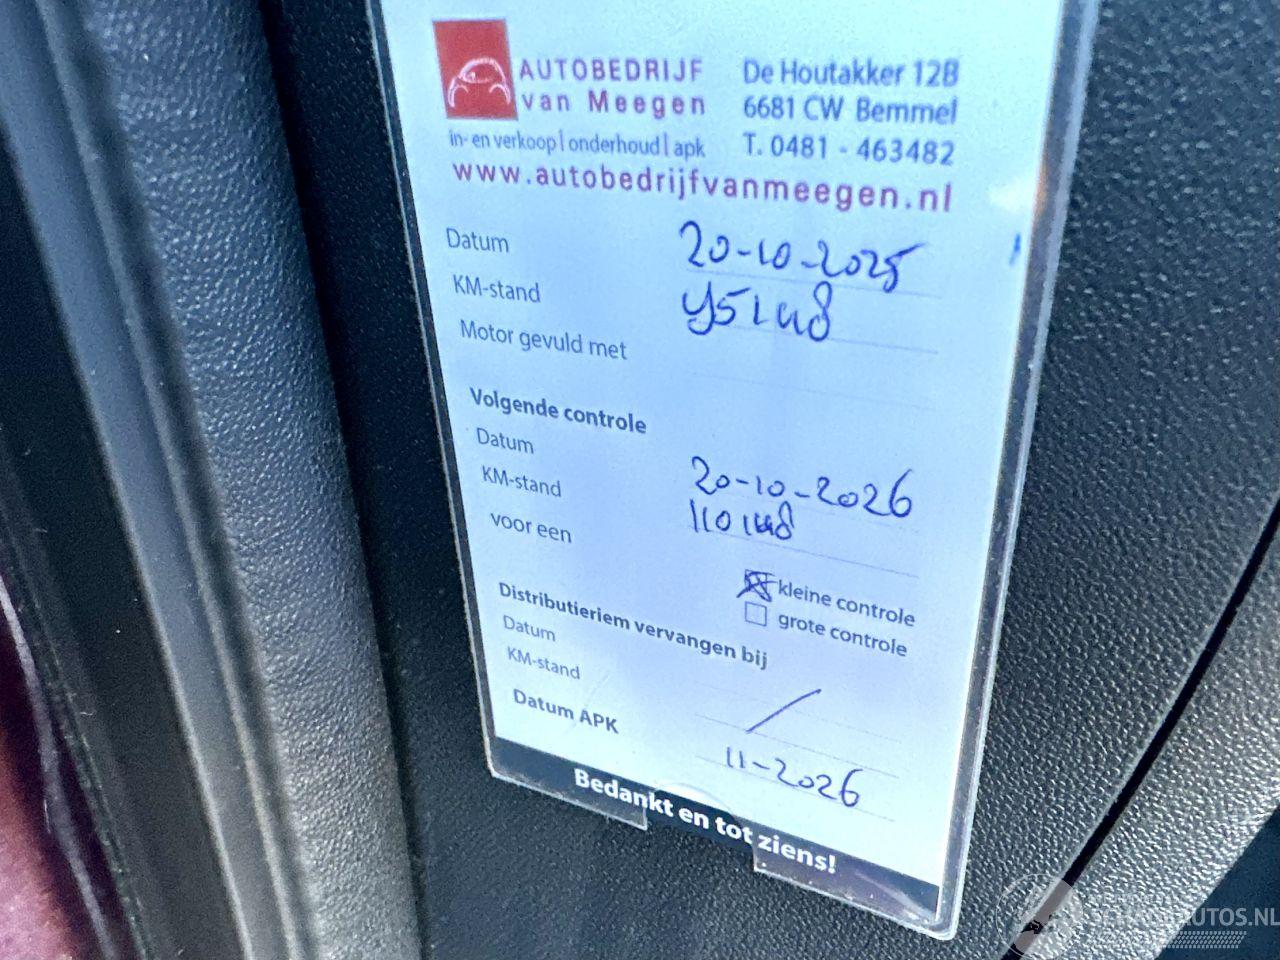 AUTOBEDRIJF
van Meegen
in- en verkoop | onderhoud | apk
De Houtakker 12B
6681 CW Bemmel
T. 0481 - 463482
www.autobedrijfvanmeegen.nl
Datum 20-10-2025
KM-stand 95148
Motor gevuld met
Volgende controle
Datum 20-10-2026
KM-stand 110148
voor een
kleine controle
grote controle
Distributieriem vervangen bij
Datum
KM-stand /
Datum APK 11-2026
Bedankt en tot ziens!